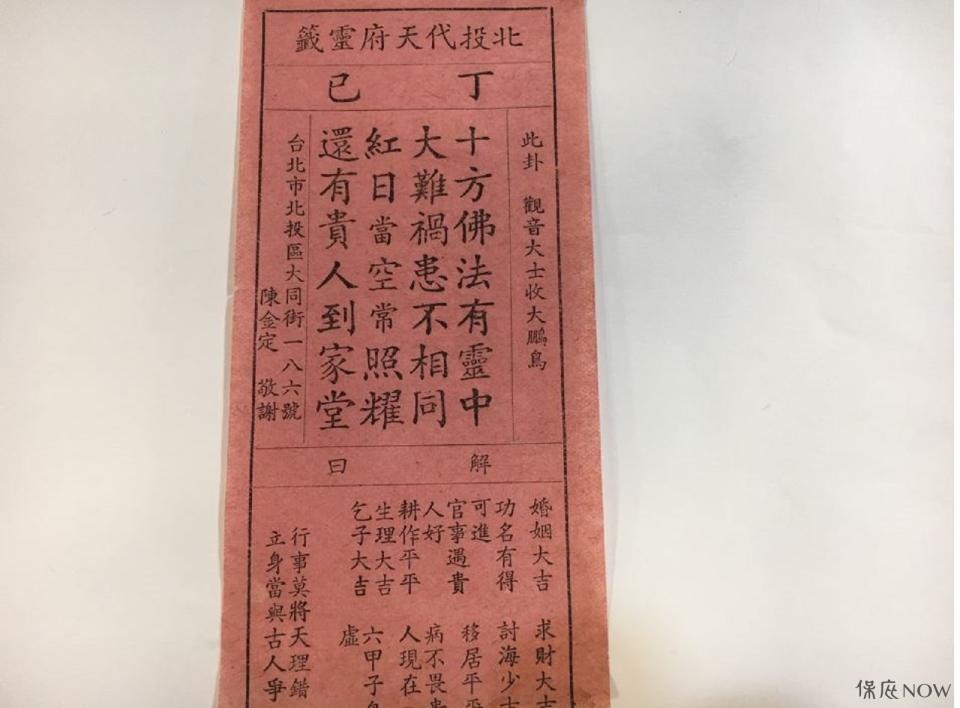 北投代天府靈籤
丁 已
此卦 觀音大士收大鵬鳥
十方佛法有靈中
大難禍患不相同
紅日當空常照耀
還有貴人到家堂
台北市北投區大同街一八六號
陳金定 敬謝
解 曰
婚姻大吉
功名有得
可進
官事遇貴
人好
耕作平平
生理大吉
乞子大吉
求財大吉
討海少吉
移居平平
病不畏患
人現在
六甲子
虛
行事莫將天理錯
立身當與古人爭
保庇NOW